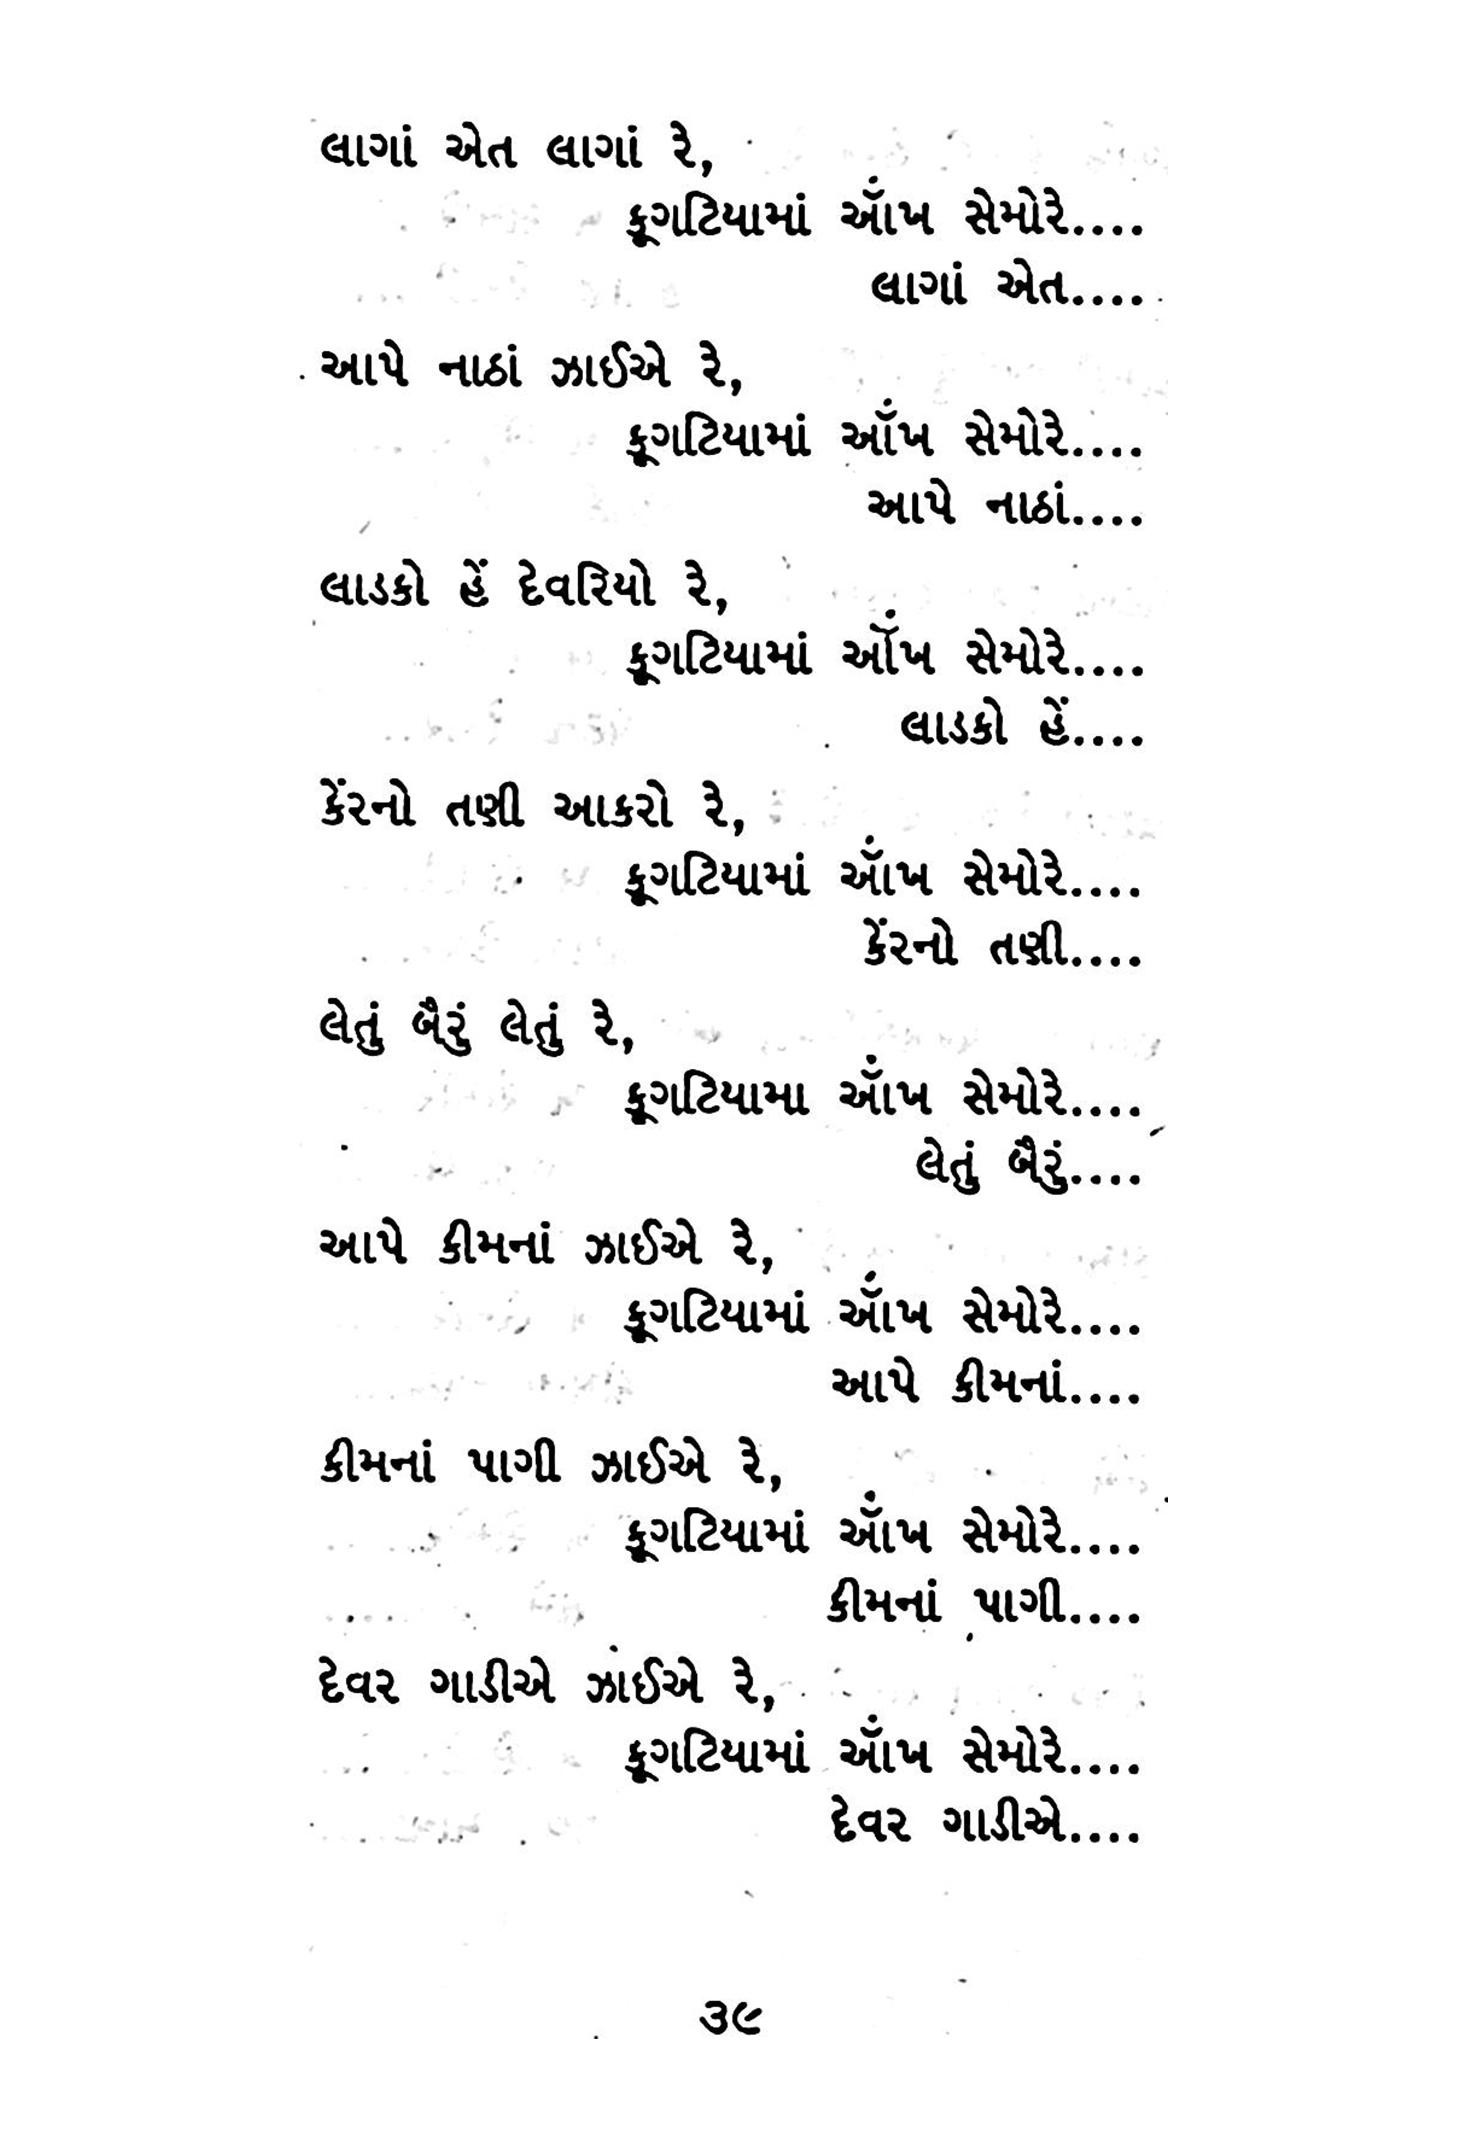 લાગાં એત લાગાં રે,
ફૂગટિયામાં ઑંખ સેમોરે....
લાગાં એત....
આપે નાઠાં ઝાઈએ રે,
ફૂગટિયામાં ઑંખ સેમોરે....
આપે નાઠાં....
લાડકો હેં દેવરિયો રે,
ફૂગટિયામાં ઑંખ સેમોરે....
લાડકો હેં....
કેંરનો તણી આકરો રે,
ફૂગટિયામાં ઑંખ સેમોરે....
કેંરનો તણી....
લેતું બૈરું લેતું રે,
ફૂગટિયામા ઑંખ સેમોરે....
લેતું બૈરું....
આપે કીમનાં ઝાઈએ રે,
ફૂગટિયામાં ઑંખ સેમોરે....
આપે કીમનાં....
કીમનાં પાગી ઝાઈએ રે,
ફૂગટિયામાં ઑંખ સેમોરે....
કીમનાં પાગી....
દેવર ગાડીએ ઝાઈએ રે,
ફૂગટિયામાં ઑંખ સેમોરે....
દેવર ગાડીએ....
૩૯